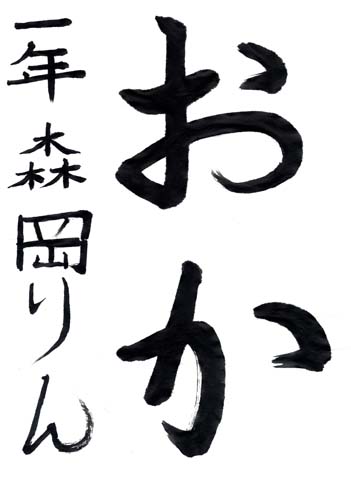 おか
一年 森岡りん